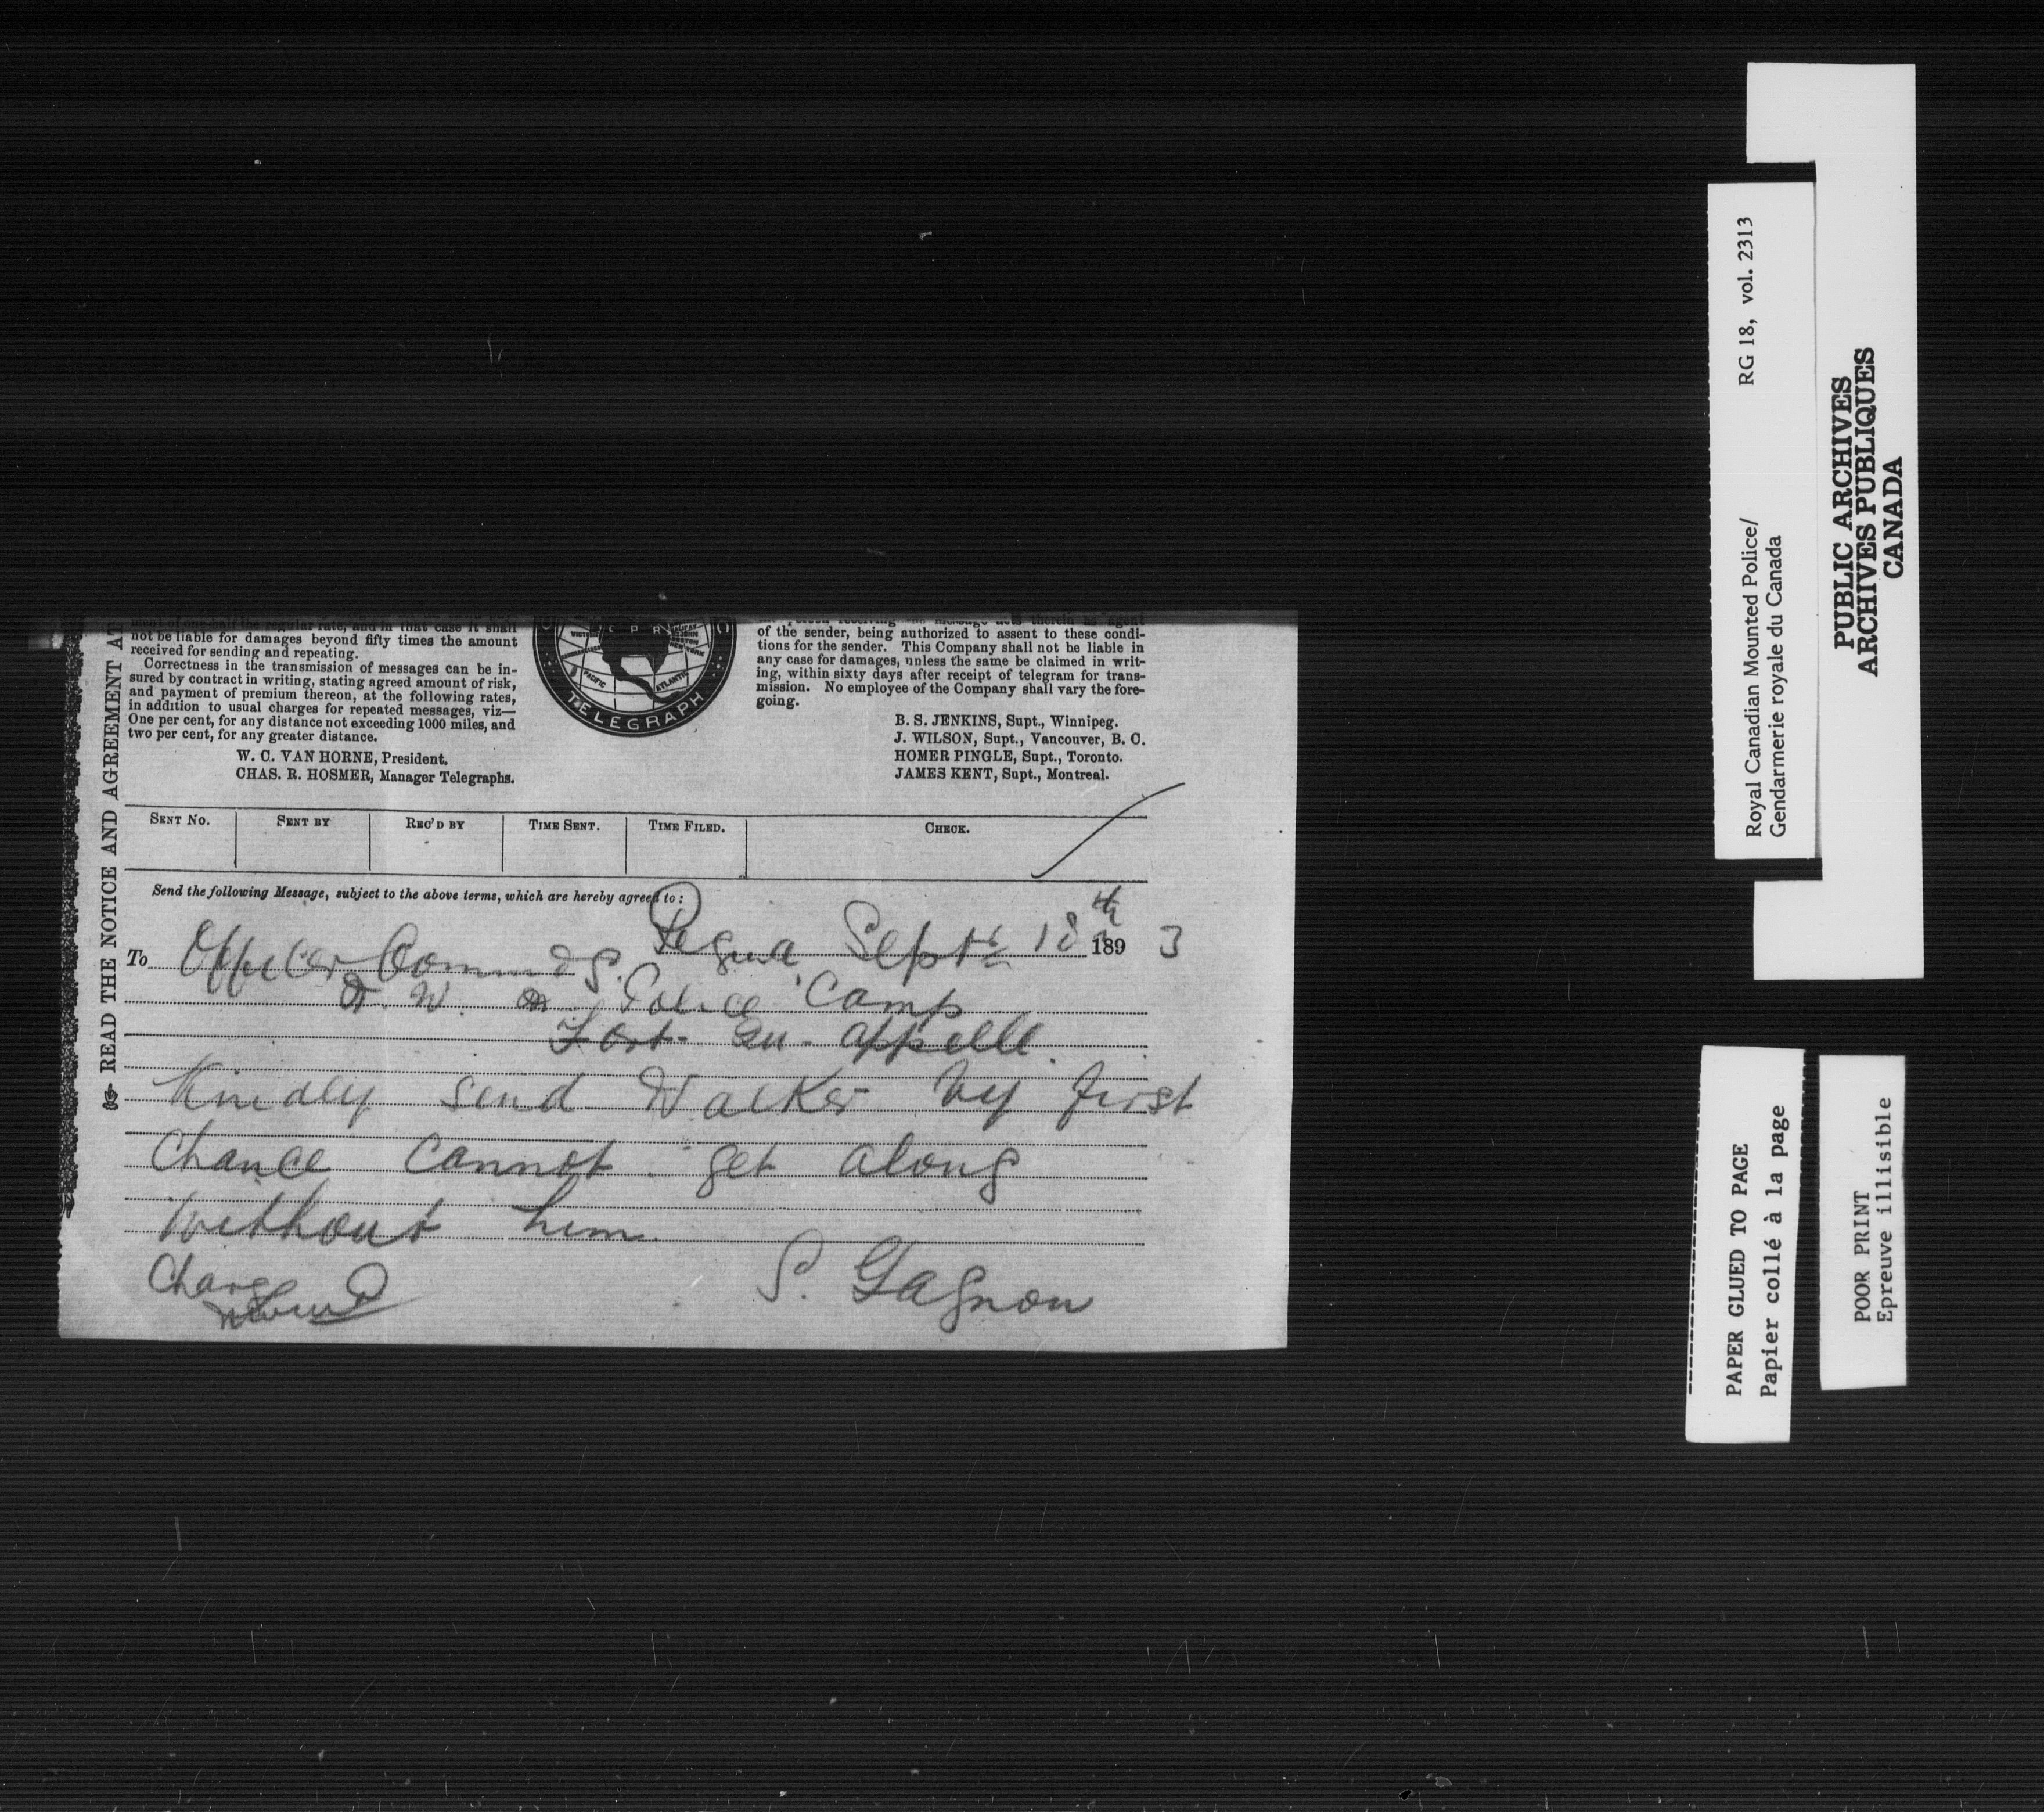 READ THE NOTICE AND AGREEMENT AT
ment of one-half the regular rate, and in that case it shall
not be liable for damages beyond fifty times the amount
received for sending and repeating.
Correctness in the transmission of messages can be in-
sured by contract in writing, stating agreed amount of risk,
and payment of premium thereon, at the following rates,
in addition to usual charges for repeated messages, viz—
One per cent, for any distance not exceeding 1000 miles, and
two per cent, for any greater distance.
W. C. VAN HORNE, President.
CHAS. R. HOSMER, Manager Telegraphs.
C P R
PACIFIC
ATLANTIC
NEW YORK
TELEGRAPH
message acts therein as agent
of the sender, being authorized to assent to these condi-
tions for the sender. This Company shall not be liable in
any case for damages, unless the same be claimed in writ-
ing, within sixty days after receipt of telegram for trans-
mission. No employee of the Company shall vary the fore-
going.
B. S. JENKINS, Supt., Winnipeg.
J. WILSON, Supt., Vancouver, B. C.
HOMER PINGLE, Supt., Toronto.
JAMES KENT, Supt., Montreal.
SENT NO. SENT BY REC'D BY TIME SENT. TIME FILED. CHECK.
Send the following Message, subject to the above terms, which are hereby agreed to:
Regina Sept 18th 1893
To Officer Commdg.
N. W. M. Police Camp
Fort Qu. appelle.
Kindly send Walker by first
chance cannot get along
without him.
S. Gagnon
Charge
RG 18, vol. 2313
Royal Canadian Mounted Police/
Gendarmerie royale du Canada
PUBLIC ARCHIVES
ARCHIVES PUBLIQUES
CANADA
PAPER GLUED TO PAGE
Papier collé à la page
POOR PRINT
Epreuve illisible